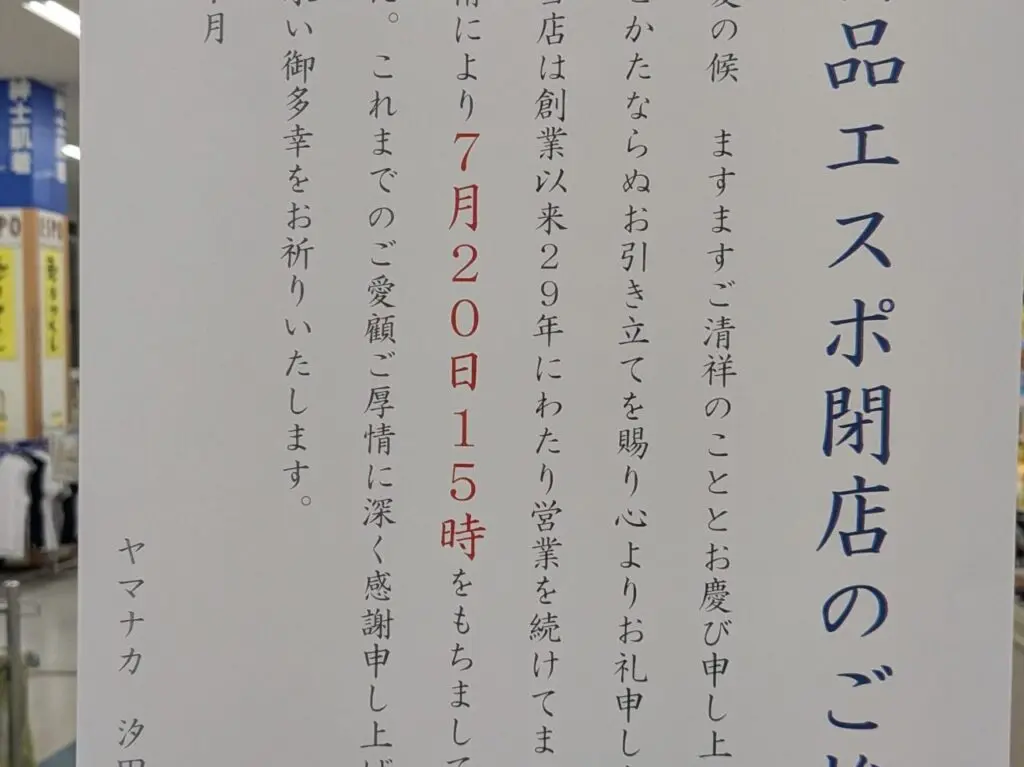 品エスポ閉店のご挨
の候　ますますご清祥のこととお慶び申し上
とかたならぬお引き立てを賜り心よりお礼申し
店は創業以来29年にわたり営業を続けてま
情により7月20日15時をもちまして
た。これまでのご愛顧ご厚情に深く感謝申し上げ
い御多幸をお祈りいたします。
月
ヤマナカ　汐田
紳士肌着
ESPO